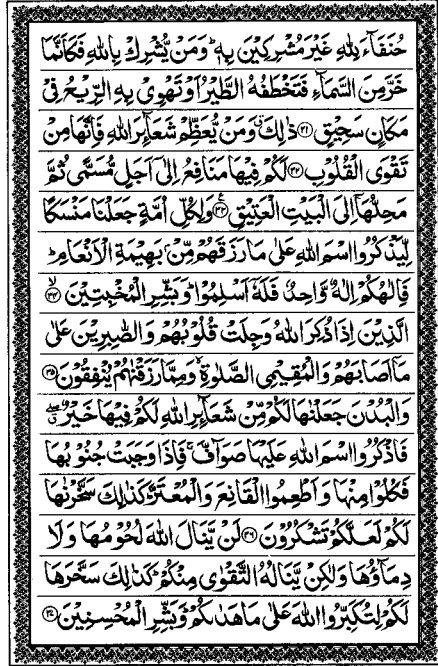 حُنَفَآءَ لِلّٰهِ غَيْرَ مُشْرِكِيْنَ بِهٖ ؕ وَمَنْ يُّشْرِكْ بِاللّٰهِ فَكَاَنَّمَا
خَرَّ مِنَ السَّمَآءِ فَتَخْطَفُهُ الطَّيْرُ اَوْ تَهْوِىْ بِهِ الرِّيْحُ فِىْ
مَكَانٍ سَحِيْقٍ ۝۳۱ ذٰلِكَ ۗ وَمَنْ يُّعَظِّمْ شَعَآئِرَ اللّٰهِ فَاِنَّهَا مِنْ
تَقْوَى الْقُلُوْبِ ۝۳۲ لَكُمْ فِيْهَا مَنَافِعُ اِلٰٓى اَجَلٍ مُّسَمًّى ثُمَّ
مَحِلُّهَآ اِلَى الْبَيْتِ الْعَتِيْقِ ۝۳۳ وَلِكُلِّ اُمَّةٍ جَعَلْنَا مَنْسَكًا
لِّيَذْكُرُوا اسْمَ اللّٰهِ عَلٰى مَا رَزَقَهُمْ مِّنْۢ بَهِيْمَةِ الْاَنْعَامِ ؕ
فَاِلٰهُكُمْ اِلٰهٌ وَّاحِدٌ فَلَهٗٓ اَسْلِمُوْا ؕ وَبَشِّرِ الْمُخْبِتِيْنَ ۝۳۴ ۙ
الَّذِيْنَ اِذَا ذُكِرَ اللّٰهُ وَجِلَتْ قُلُوْبُهُمْ وَالصّٰبِرِيْنَ عَلٰى
مَآ اَصَابَهُمْ وَالْمُقِيْمِى الصَّلٰوةِ ۙ وَمِمَّا رَزَقْنٰهُمْ يُنْفِقُوْنَ ۝۳۵
وَالْبُدْنَ جَعَلْنٰهَا لَكُمْ مِّنْ شَعَآئِرِ اللّٰهِ لَكُمْ فِيْهَا خَيْرٌ ۖ
فَاذْكُرُوا اسْمَ اللّٰهِ عَلَيْهَا صَوَآفَّ ۚ فَاِذَا وَجَبَتْ جُنُوْبُهَا
فَكُلُوْا مِنْهَا وَاَطْعِمُوا الْقَانِعَ وَالْمُعْتَرَّ ؕ كَذٰلِكَ سَخَّرْنٰهَا
لَكُمْ لَعَلَّكُمْ تَشْكُرُوْنَ ۝۳۶ لَنْ يَّنَالَ اللّٰهَ لُحُوْمُهَا وَلَا
دِمَآؤُهَا وَلٰكِنْ يَّنَالُهُ التَّقْوٰى مِنْكُمْ ؕ كَذٰلِكَ سَخَّرَهَا
لَكُمْ لِتُكَبِّرُوا اللّٰهَ عَلٰى مَا هَدٰىكُمْ ؕ وَبَشِّرِ الْمُحْسِنِيْنَ ۝۳۷